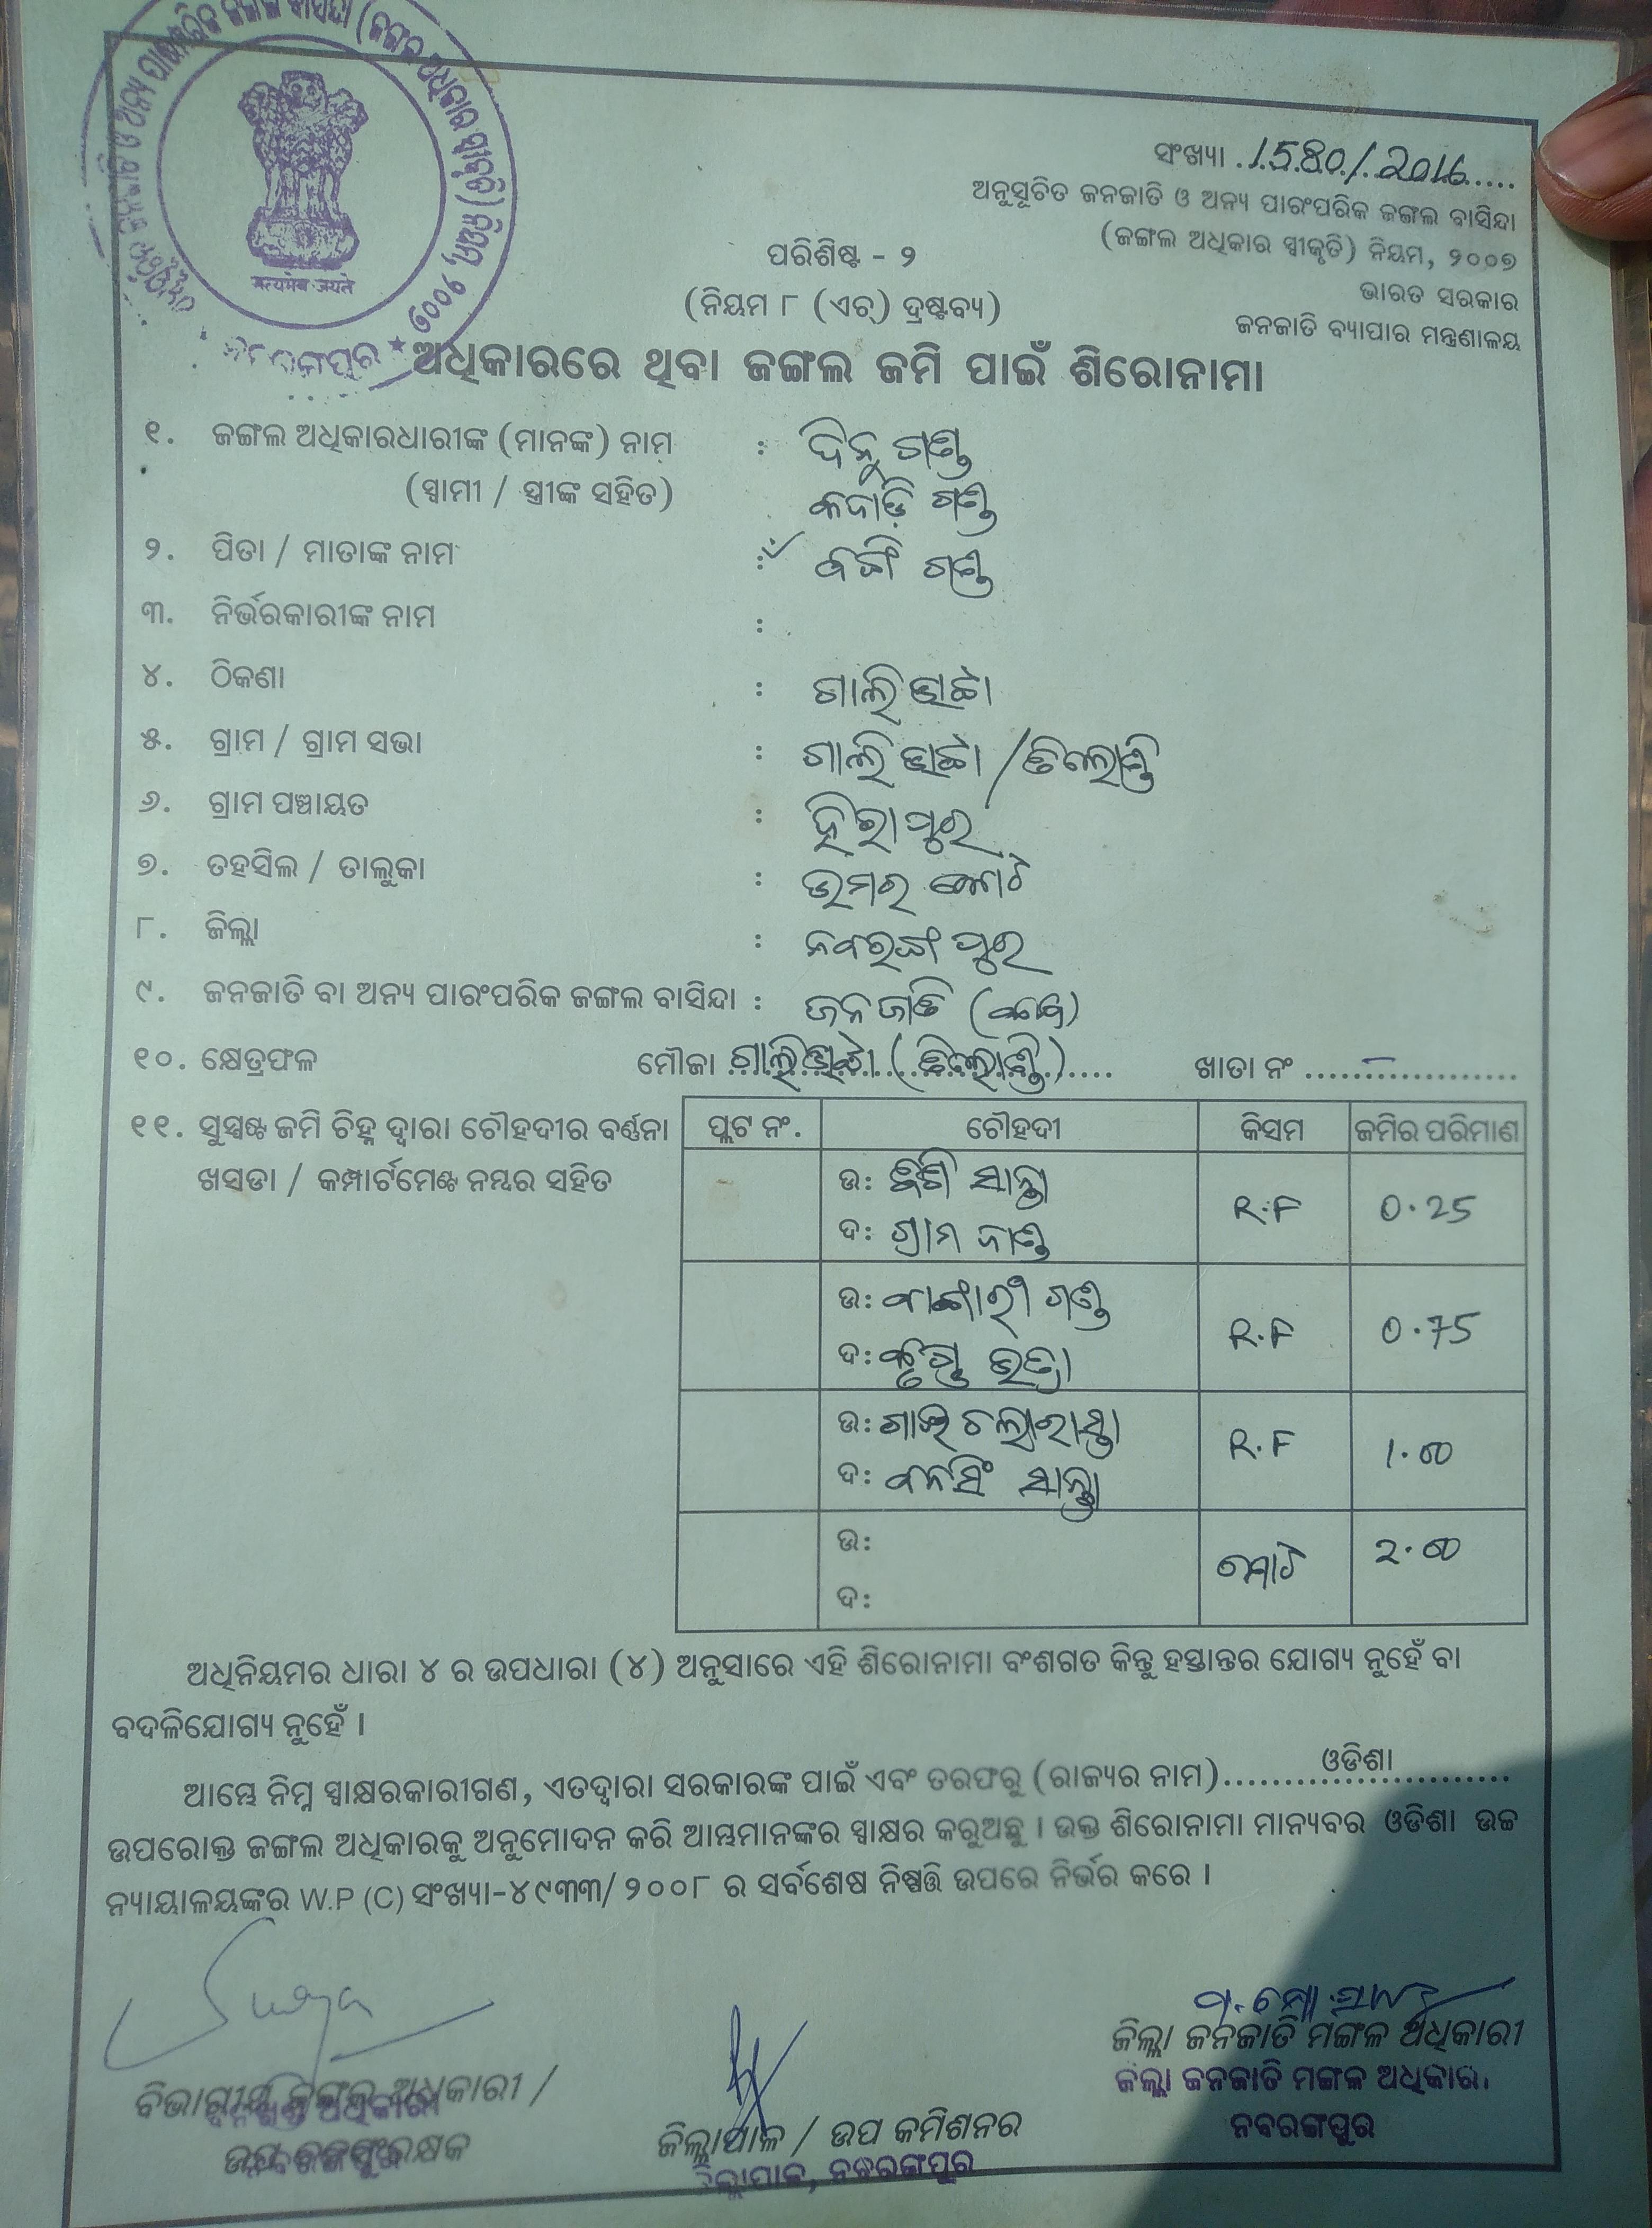 ସଂଖ୍ୟା 1580/2016
ଅନୁସୂଚିତ ଜନଜାତି ଓ ଅନ୍ୟ ପାରଂପରିକ ଜଙ୍ଗଲ ବାସିନ୍ଦା
(ଜଙ୍ଗଲ ଅଧିକାର ସ୍ୱୀକୃତି) ନିୟମ, ୨୦୦୭
ଭାରତ ସରକାର
ଜନଜାତି ବ୍ୟାପାର ମନ୍ତ୍ରଣାଳୟ
सत्यमेव जयते
ପରିଶିଷ୍ଟ - ୨
(ନିୟମ ୮ (ଏଚ୍) ଦ୍ରଷ୍ଟବ୍ୟ)
ଅଧିକାରରେ ଥିବା ଜଙ୍ଗଲ ଜମି ପାଇଁ ଶିରୋନାମା
୧. ଜଙ୍ଗଲ ଅଧିକାରଧାରୀଙ୍କ (ମାନଙ୍କ) ନାମ : ଦିନୁ ଗଣ୍ଡ
(ସ୍ୱାମୀ / ସ୍ତ୍ରୀଙ୍କ ସହିତ) ଗଣ୍ଡ
୨. ପିତା / ମାତାଙ୍କ ନାମ : ଗଣ୍ଡ
୩. ନିର୍ଭରକାରୀଙ୍କ ନାମ :
୪. ଠିକଣା : ଗାଲିଭାଟା
୫. ଗ୍ରାମ / ଗ୍ରାମ ସଭା : ଗାଲିଭାଟା /
୬. ଗ୍ରାମ ପଞ୍ଚାୟତ : ହିରାପୁର
୭. ତହସିଲ / ତାଲୁକା : ଉମରକୋଟ
୮. ଜିଲ୍ଲା : ନବରଙ୍ଗପୁର
୯. ଜନଜାତି ବା ଅନ୍ୟ ପାରଂପରିକ ଜଙ୍ଗଲ ବାସିନ୍ଦା : ଜନଜାତି
୧୦. କ୍ଷେତ୍ରଫଳ ମୌଜା ଗାଲିଭାଟା ଖାତା ନଂ –
୧୧. ସୁସ୍ପଷ୍ଟ ଜମି ଚିହ୍ନ ଦ୍ୱାରା ଚୌହଦୀର ବର୍ଣ୍ଣନା
ଖସଡା / କମ୍ପାର୍ଟମେଣ୍ଟ ନମ୍ବର ସହିତ
ପ୍ଲଟ ନଂ. ଚୌହଦୀ କିସମ ଜମିର ପରିମାଣ
ଉ: ସାନ୍ତା
ଦ: ଗ୍ରାମ R.F 0.25
ଉ: ଗଣ୍ଡ
ଦ: R.F 0.75
ଉ:
ଦ: ସାନ୍ତା R.F 1.00
ଉ:
ଦ: ମୋଟ 2.00
ଅଧିନିୟମର ଧାରା ୪ ର ଉପଧାରା (୪) ଅନୁସାରେ ଏହି ଶିରୋନାମା ବଂଶଗତ କିନ୍ତୁ ହସ୍ତାନ୍ତର ଯୋଗ୍ୟ ନୁହେଁ ବା
ବଦଳିଯୋଗ୍ୟ ନୁହେଁ ।
ଆମ୍ଭେ ନିମ୍ନ ସ୍ୱାକ୍ଷରକାରୀଗଣ, ଏତଦ୍ୱାରା ସରକାରଙ୍କ ପାଇଁ ଏବଂ ତରଫରୁ (ରାଜ୍ୟର ନାମ) ଓଡିଶା
ଉପରୋକ୍ତ ଜଙ୍ଗଲ ଅଧିକାରକୁ ଅନୁମୋଦନ କରି ଆମ୍ଭମାନଙ୍କର ସ୍ୱାକ୍ଷର କରୁଅଛୁ । ଉକ୍ତ ଶିରୋନାମା ମାନ୍ୟବର ଓଡିଶା ଉଚ୍ଚ
ନ୍ୟାୟାଳୟଙ୍କର W.P (C) ସଂଖ୍ୟା-୪୯୩୩/୨୦୦୮ ର ସର୍ବଶେଷ ନିଷ୍ପତ୍ତି ଉପରେ ନିର୍ଭର କରେ ।
ଜିଲ୍ଲା ଜନଜାତି ମଙ୍ଗଳ ଅଧିକାରୀ
ଜିଲ୍ଲା ଜନଜାତି ମଙ୍ଗଳ ଅଧିକାରୀ
ନବରଙ୍ଗପୁର
ବିଭାଗୀୟ ଜଙ୍ଗଲ ଅଧିକାରୀ /
ଉପ ଜଙ୍ଗଲ ସଂରକ୍ଷକ
ଜିଲ୍ଲାପାଳ / ଉପ କମିଶନର
ଜିଲ୍ଲାପାଳ, ନବରଙ୍ଗପୁର